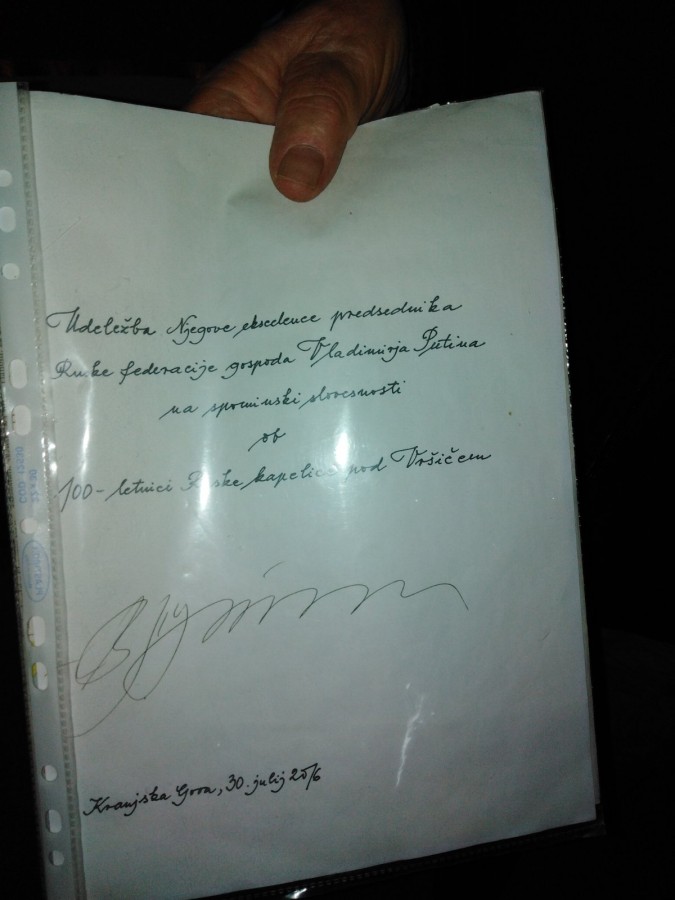 Udeležba Njegove ekscelence predsednika
Ruske federacije gospoda Vladimirja Putina
na spominski slovesnosti
ob
100-letnici Ruske kapelice pod Vršičem
Kranjska Gora, 30. julij 2016